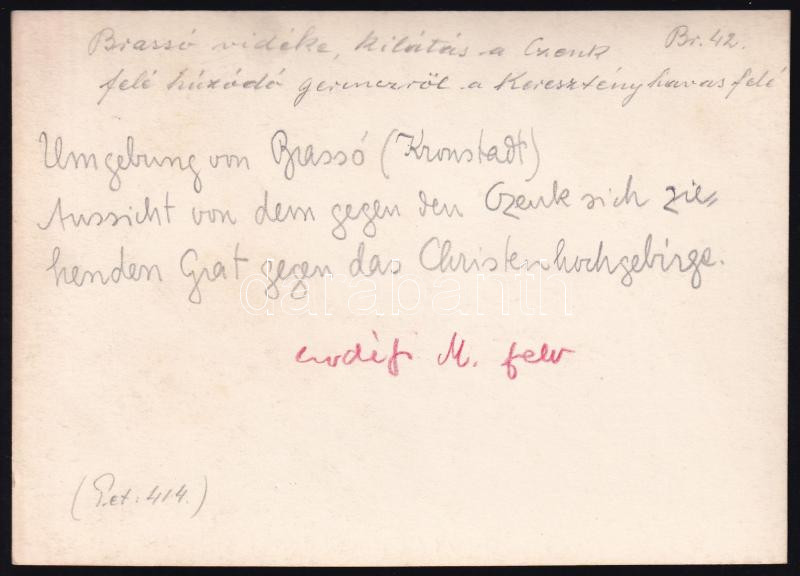 Brassó vidéke, kilátás a Czenk Br. 42.
felé húzódó gerinczről a Keresztényhavas felé
Umgebung von Brassó (Kronstadt)
Aussicht von dem gegen den Czenk sich zie=
henden Grat gegen das Christenhochgebirge.
darabanth
M. felv
414.)